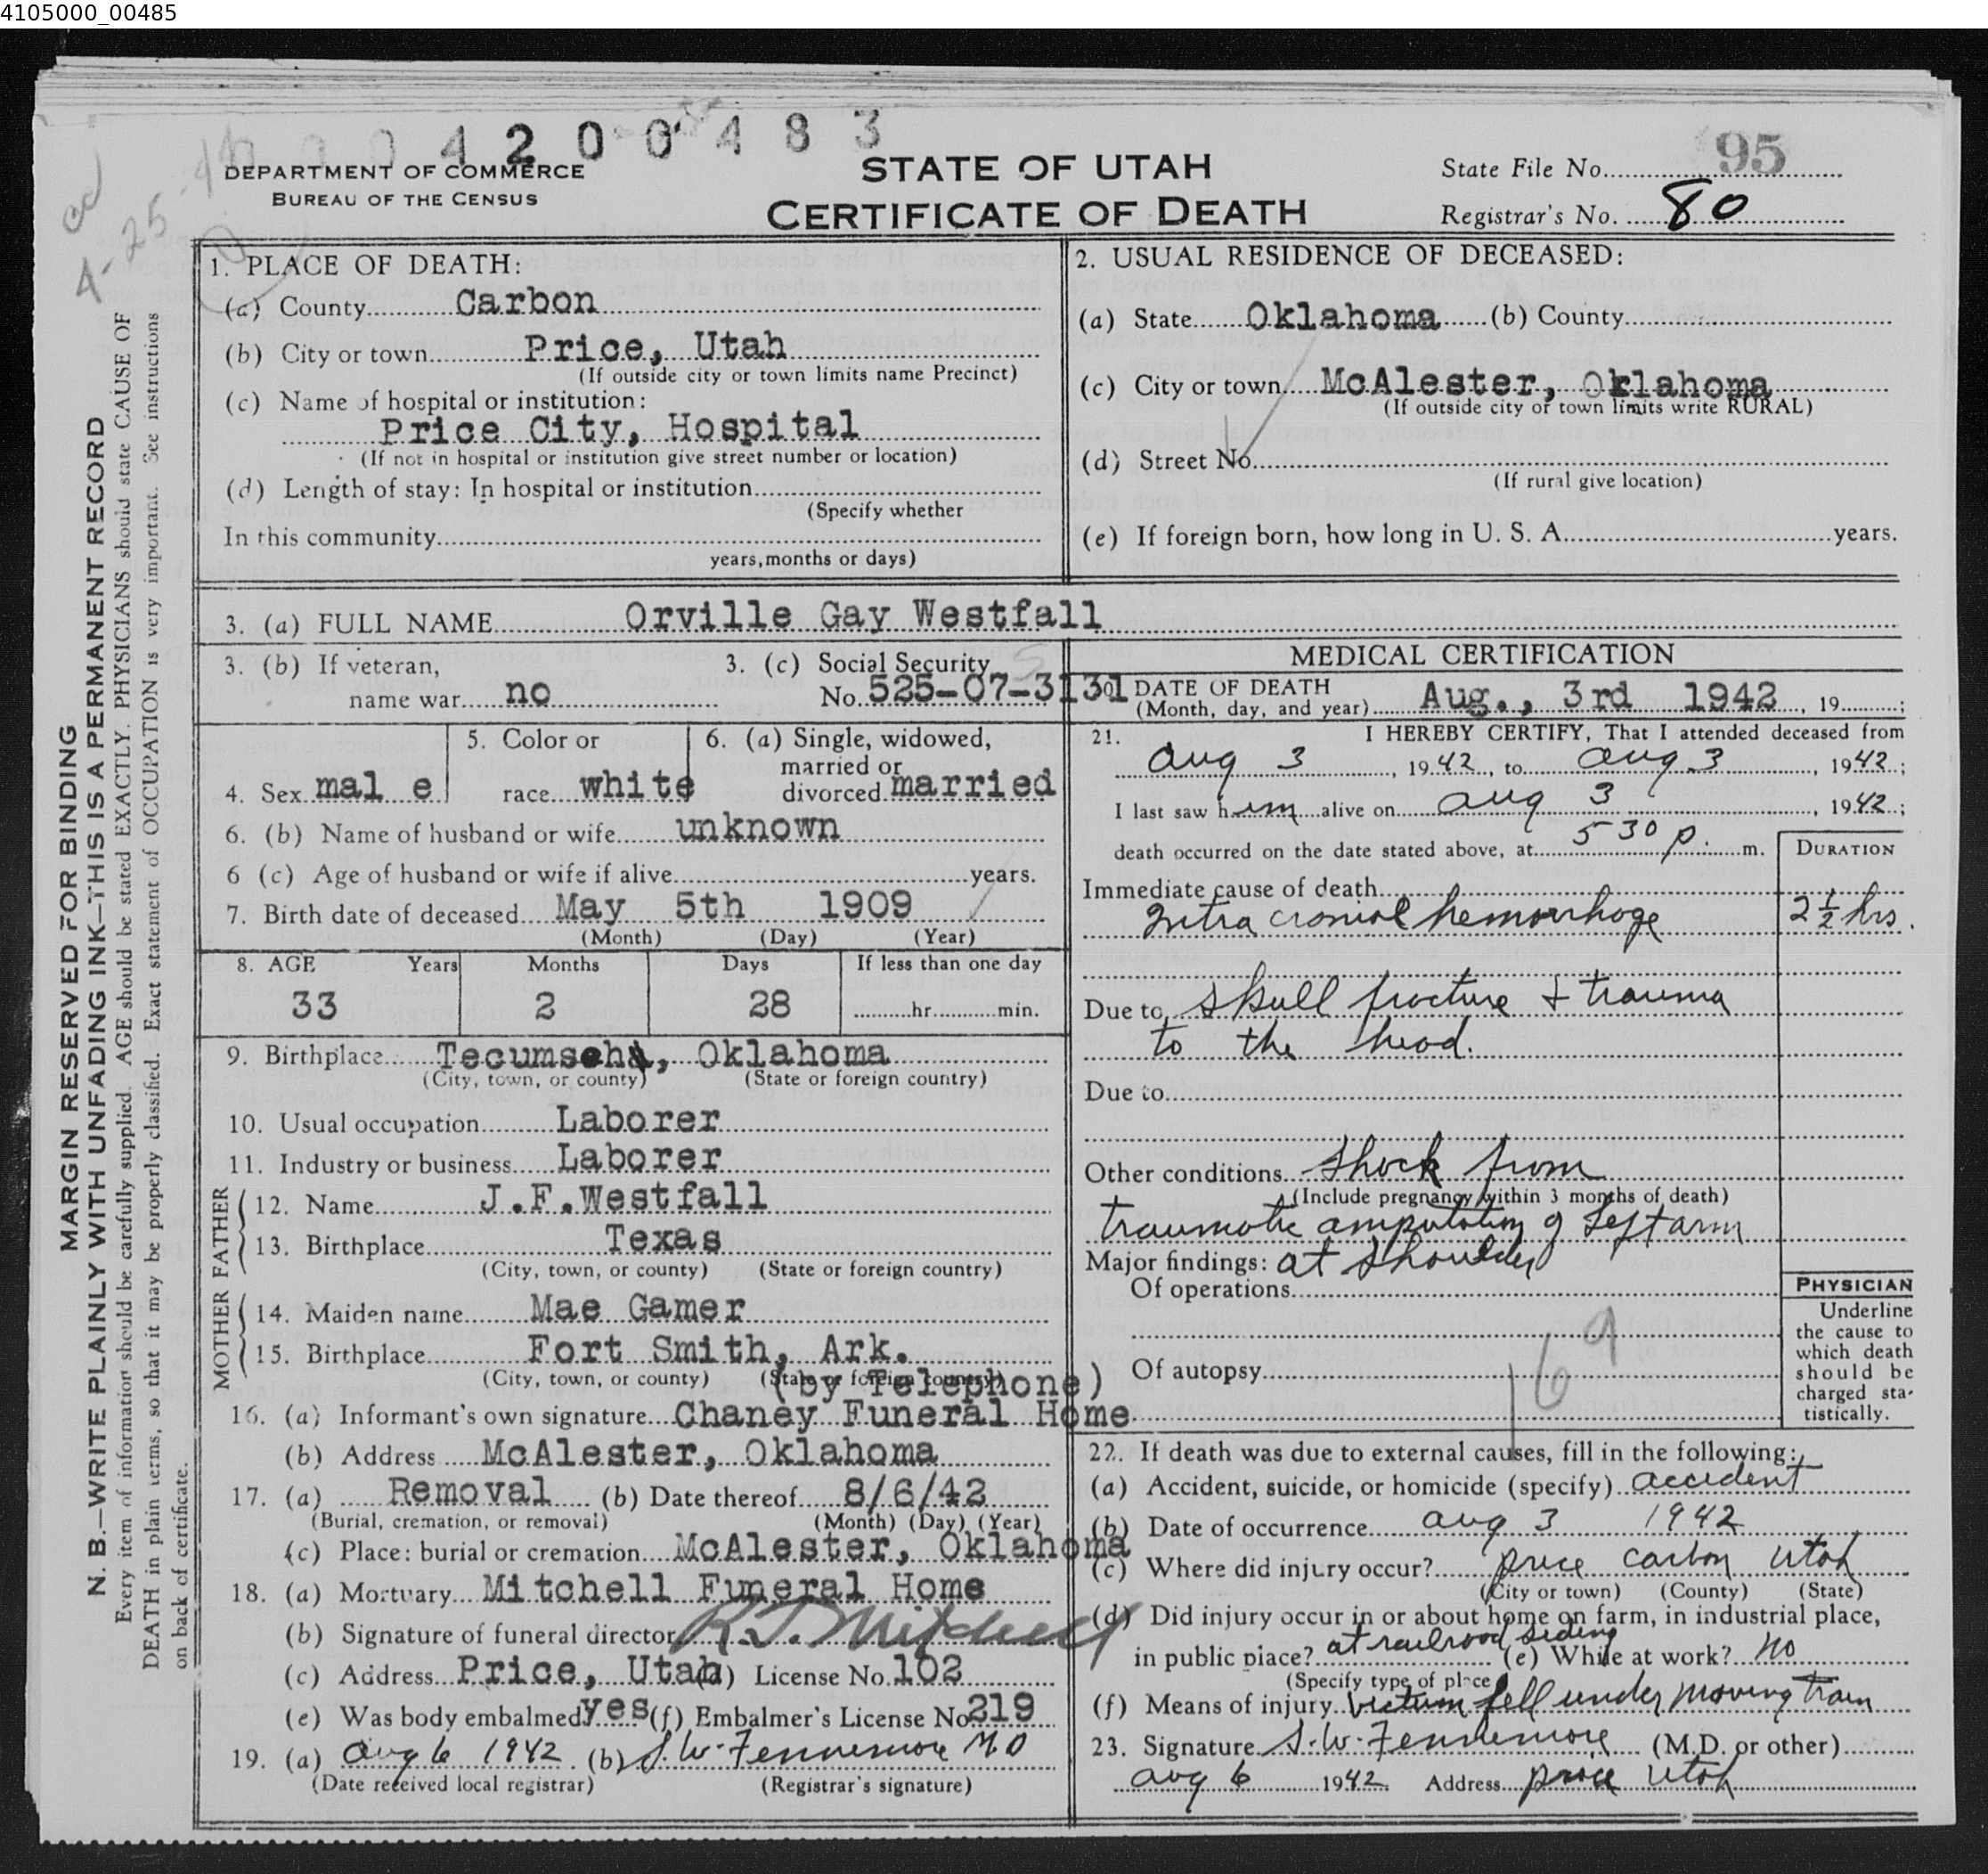 4105000_00485
4 2 0 0 4 8 3
DEPARTMENT OF COMMERCE
BUREAU OF THE CENSUS
STATE OF UTAH
CERTIFICATE OF DEATH
State File No. 95
Registrar's No. 80
MARGIN RESERVED FOR BINDING
N. B.—WRITE PLAINLY WITH UNFADING INK—THIS IS A PERMANENT RECORD
Every item of information should be carefully supplied. AGE should be stated EXACTLY. PHYSICIANS should state CAUSE OF
DEATH in plain terms, so that it may be properly classified. Exact statement of OCCUPATION is very important. See instructions
on back of certificate.
1. PLACE OF DEATH:
(a) County Carbon
(b) City or town Price, Utah
(If outside city or town limits name Precinct)
(c) Name of hospital or institution:
Price City, Hospital
(If not in hospital or institution give street number or location)
(d) Length of stay: In hospital or institution
(Specify whether
In this community
years, months or days)
2. USUAL RESIDENCE OF DECEASED:
(a) State Oklahoma (b) County
(c) City or town McAlester, Oklahoma
(If outside city or town limits write RURAL)
(d) Street No.
(If rural give location)
(e) If foreign born, how long in U. S. A. years.
3. (a) FULL NAME Orville Gay Westfall
3. (b) If veteran,
name war no
3. (c) Social Security
No. 525-07-3131
4. Sex male
5. Color or
race white
6. (a) Single, widowed,
married or
divorced married
6. (b) Name of husband or wife unknown
6 (c) Age of husband or wife if alive years.
7. Birth date of deceased May 5th 1909
(Month) (Day) (Year)
8. AGE Years Months Days If less than one day
33 2 28 hr. min.
9. Birthplace Tecumseh, Oklahoma
(City, town, or county) (State or foreign country)
10. Usual occupation Laborer
11. Industry or business Laborer
FATHER
12. Name J.F.Westfall
13. Birthplace Texas
(City, town, or county) (State or foreign country)
MOTHER
14. Maiden name Mae Gamer
15. Birthplace Fort Smith, Ark.
(City, town, or county) (State or foreign country)
(by Telephone)
16. (a) Informant's own signature Chaney Funeral Home
(b) Address McAlester, Oklahoma
17. (a) Removal (b) Date thereof 8/6/42
(Burial, cremation, or removal) (Month) (Day) (Year)
(c) Place: burial or cremation McAlester, Oklahoma
18. (a) Mortuary Mitchell Funeral Home
(b) Signature of funeral director Mitchell
(c) Address Price, Utah (d) License No. 102
(e) Was body embalmed yes (f) Embalmer's License No. 219
19. (a) Aug 6 1942 (b) S.W. Fennemore MD
(Date received local registrar) (Registrar's signature)
MEDICAL CERTIFICATION
DATE OF DEATH
(Month, day, and year) Aug., 3rd 1942, 19 ;
21. I HEREBY CERTIFY, That I attended deceased from
Aug 3, 1942, to Aug. 3, 1942;
I last saw him alive on Aug 3, 1942;
death occurred on the date stated above, at 5 30 p. m.
DURATION
Immediate cause of death
Intra cranial hemorrhage 2½ hrs.
Due to skull fracture & trauma
to the head.
Due to
Other conditions shock from
(Include pregnancy within 3 months of death)
traumatic amputation of left arm
Major findings: at shoulder
Of operations
Of autopsy
169
PHYSICIAN
Underline
the cause to
which death
should be
charged sta-
tistically.
22. If death was due to external causes, fill in the following:
(a) Accident, suicide, or homicide (specify) accident
(b) Date of occurrence Aug 3 1942
(c) Where did injury occur? Price Carbon Utah
(City or town) (County) (State)
(d) Did injury occur in or about home on farm, in industrial place,
in public place? at railroad siding (e) While at work? No
(Specify type of place)
(f) Means of injury Victum fell under moving train
23. Signature S.W. Fennemore (M.D. or other)
Aug 6 1942 Address Price Utah